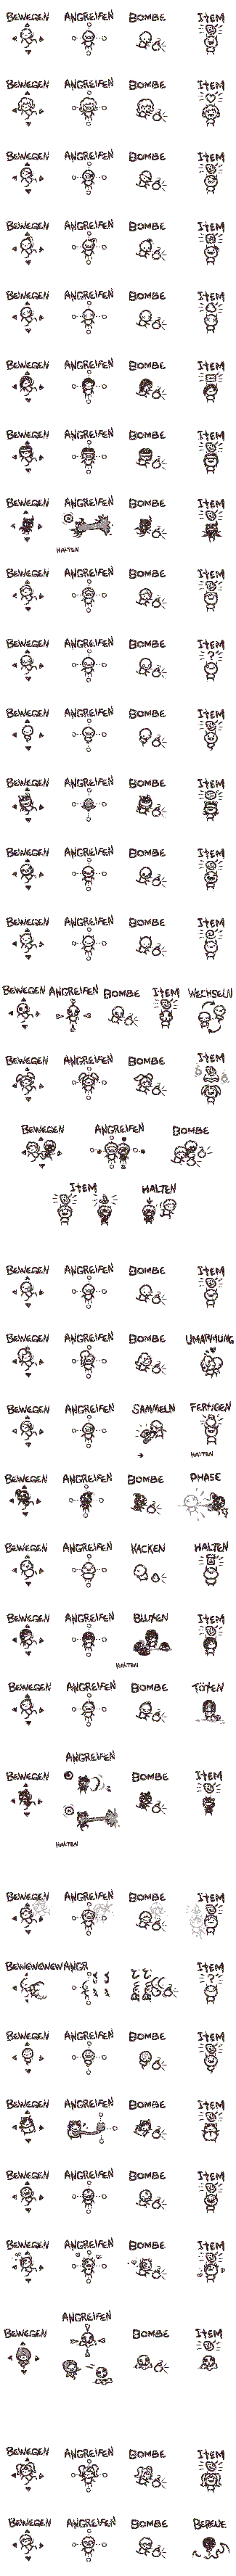 BEWEGEN ANGREIFEN BOMBE ITEM
BEWEGEN ANGREIFEN BOMBE ITEM
BEWEGEN ANGREIFEN BOMBE ITEM
BEWEGEN ANGREIFEN BOMBE ITEM
BEWEGEN ANGREIFEN BOMBE ITEM
BEWEGEN ANGREIFEN BOMBE ITEM
BEWEGEN ANGREIFEN BOMBE ITEM
BEWEGEN ANGREIFEN BOMBE ITEM
HALTEN
BEWEGEN ANGREIFEN BOMBE ITEM
BEWEGEN ANGREIFEN BOMBE ITEM
?
BEWEGEN ANGREIFEN BOMBE ITEM
BEWEGEN ANGREIFEN BOMBE ITEM
BEWEGEN ANGREIFEN BOMBE ITEM
BEWEGEN ANGREIFEN BOMBE ITEM
BEWEGEN ANGREIFEN BOMBE ITEM WECHSELN
BEWEGEN ANGREIFEN BOMBE ITEM
BEWEGEN ANGREIFEN BOMBE
ITEM HALTEN
BEWEGEN ANGREIFEN BOMBE ITEM
BEWEGEN ANGREIFEN BOMBE UMARMUNG
BEWEGEN ANGREIFEN SAMMELN FERTIGEN
HALTEN
BEWEGEN ANGREIFEN BOMBE PHASE
BEWEGEN ANGREIFEN KACKEN HALTEN
BEWEGEN ANGREIFEN BLUTEN ITEM
HALTEN
BEWEGEN ANGREIFEN BOMBE TÖTEN
ANGREIFEN
BEWEGEN BOMBE ITEM
HALTEN
BEWEGEN ANGREIFEN BOMBE ITEM
BEWEWEWEW ANGR ITEM
?
BEWEGEN ANGREIFEN BOMBE ITEM
BEWEGEN ANGREIFEN BOMBE ITEM
BEWEGEN ANGREIFEN BOMBE ITEM
BEWEGEN ANGREIFEN BOMBE ITEM
ANGREIFEN
BEWEGEN BOMBE ITEM
BEWEGEN ANGREIFEN BOMBE ITEM
BEWEGEN ANGREIFEN BOMBE BEREUE